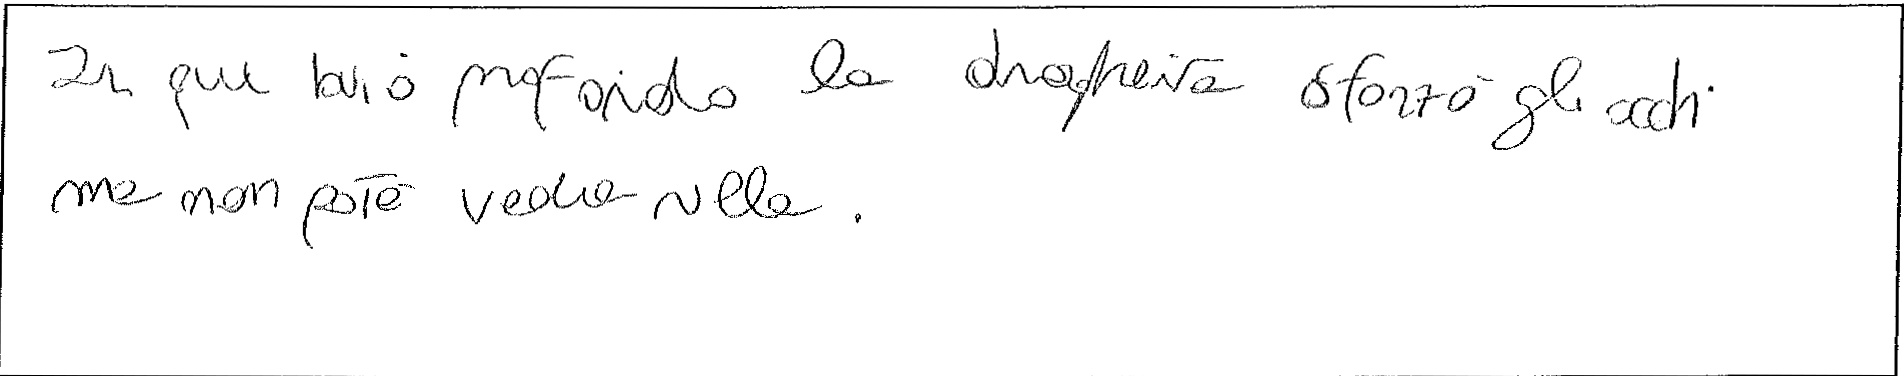 In quel buio profondo la draghetta sforzò gli occhi
ma non poté vedere nulla.